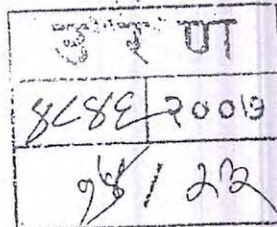 उरण
४८४६ २००७
१४ / २२